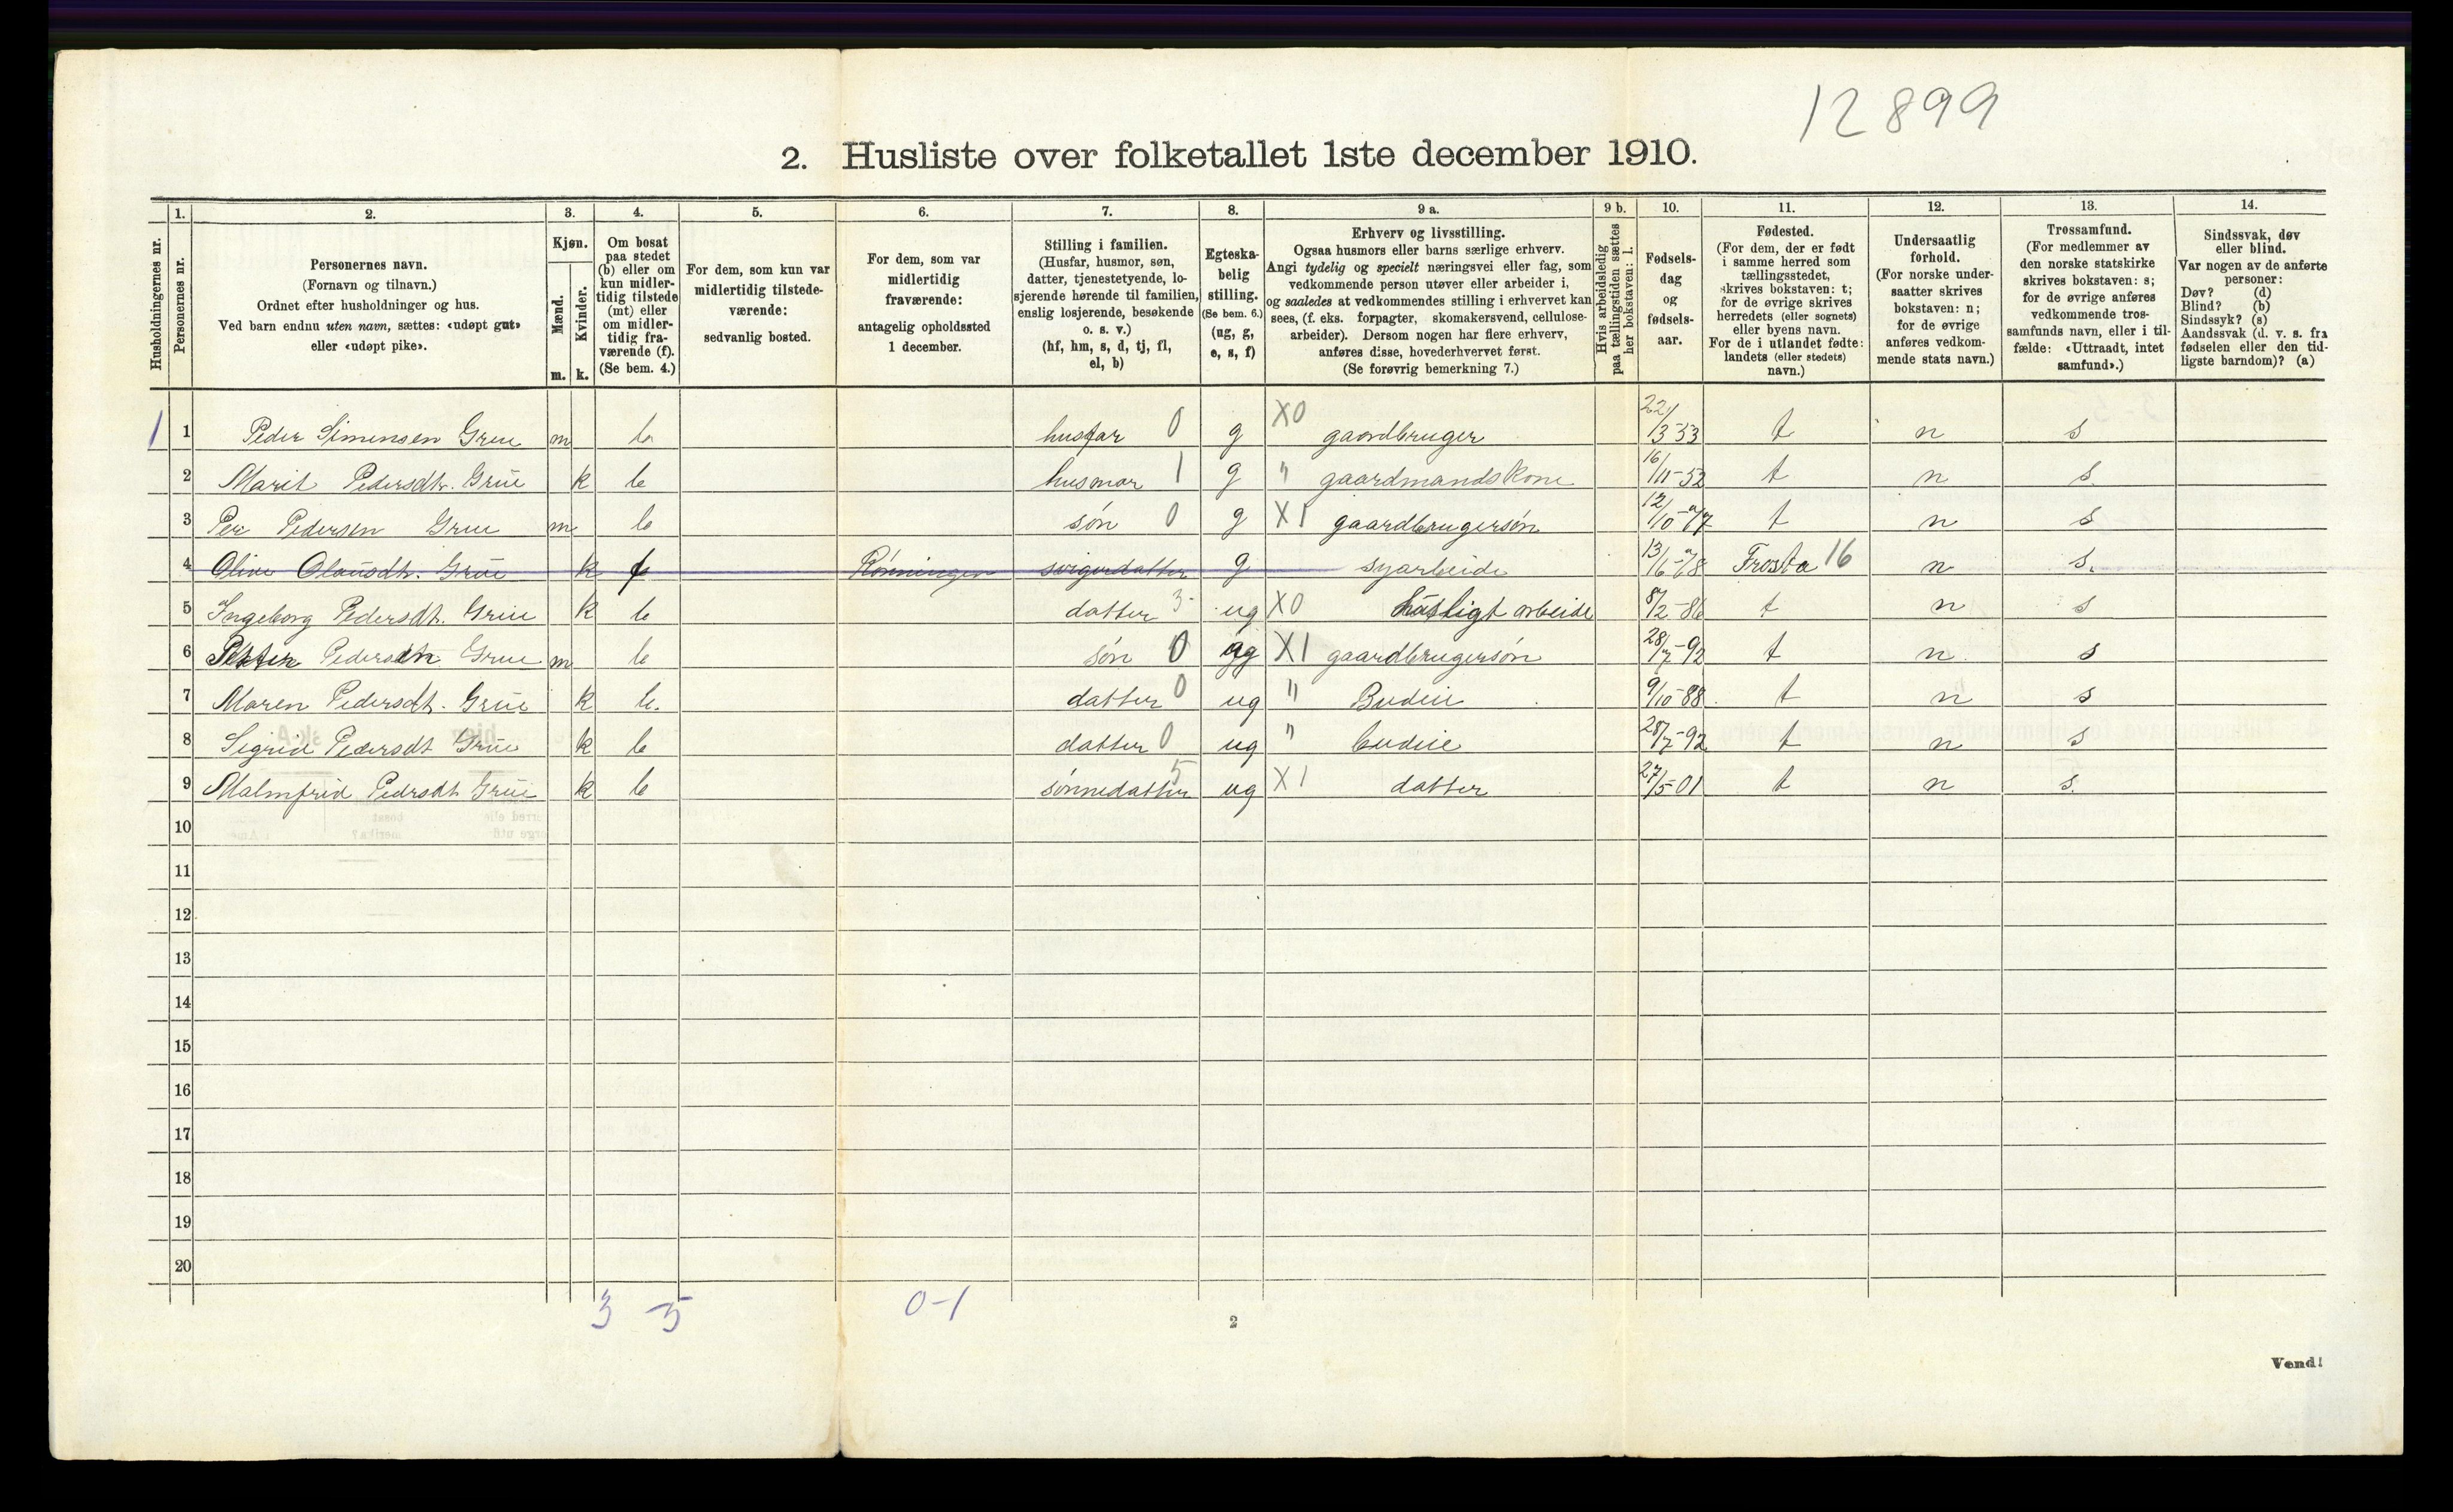 12899
2. Husliste over folketallet 1ste december 1910.
Husholdningernes nr.
1.
Personernes nr.
2.
Personernes navn.
(Fornavn og tilnavn.)
Ordnet efter husholdninger og hus.
Ved barn endnu uten navn, sættes: «udøpt gut»
eller «udøpt pike».
3.
Kjøn.
Mænd.
Kvinder.
m. k.
4.
Om bosat
paa stedet
(b) eller om
kun midler-
tidig tilstede
(mt) eller
om midler-
tidig fra-
værende (f).
(Se bem. 4.)
5.
For dem, som kun var
midlertidig tilstede-
værende:
sedvanlig bosted.
6.
For dem, som var
midlertidig
fraværende:
antagelig opholdssted
1 december.
7.
Stilling i familien.
(Husfar, husmor, søn,
datter, tjenestetyende, lo-
sjerende hørende til familien,
enslig losjerende, besøkende
o. s. v.)
(hf, hm, s, d, tj, fl,
el, b)
8.
Egteska-
belig
stilling.
(Se bem. 6.)
(ug, g,
e, s, f)
9 a.
Erhverv og livsstilling.
Ogsaa husmors eller barns særlige erhverv.
Angi tydelig og specielt næringsvei eller fag, som
vedkommende person utøver eller arbeider i,
og saaledes at vedkommendes stilling i erhvervet kan
sees, (f. eks. forpagter, skomakersvend, cellulose-
arbeider). Dersom nogen har flere erhverv,
anføres disse, hovederhvervet først.
(Se forøvrig bemerkning 7.)
9 b.
Hvis arbeidsledig
paa tællingstiden sættes
her bokstaven: l.
10.
Fødsels-
dag
og
fødsels-
aar.
11.
Fødested.
(For dem, der er født
i samme herred som
tællingsstedet,
skrives bokstaven: t;
for de øvrige skrives
herredets (eller sognets)
eller byens navn.
For de i utlandet fødte:
landets (eller stedets)
navn.)
12.
Undersaatlig
forhold.
(For norske under-
saatter skrives
bokstaven: n;
for de øvrige
anføres vedkom-
mende stats navn.)
13.
Trossamfund.
(For medlemmer av
den norske statskirke
skrives bokstaven: s;
for de øvrige anføres
vedkommende tros-
samfunds navn, eller i til-
fælde: «Uttraadt, intet
samfund».)
14.
Sindssvak, døv
eller blind.
Var nogen av de anførte
personer:
Døv? (d)
Blind? (b)
Sindssyk? (s)
Aandssvak (d. v. s. fra
fødselen eller den tid-
ligste barndom)? (a)
1 1 Peder Simensen Grue m b husfar 0 g X0 gaardbruger 22/3-53 t n s
2 Marit Pedersdtr. Grue k b husmor 1 g " gaardmandskone 16/11-52 t n s
3 Per Pedersen Grue m b søn 0 g X1 gaardbrugersøn 12/10-77 t n s
4 Olive Olausdtr. Grue k f Rønningen svigerdatter g syarbeide 13/6-78 Frosta 16 n s.
5 Ingeborg Pedersdtr. Grue k b datter 3 ug X0 husligt arbeide 8/2-86 t n s
6 Petter Pedersen Grue m b søn 0 ug X1 gaardbrugersøn 28/7-92 t n s
7 Maren Pedersdt. Grue k b. datter 0 ug " Budeie 9/10-88 t n s
8 Sigrid Pedersdt Grue k b datter 0 ug " budeie 28/7-92 t n s
9 Malmfrid Pedrsdt Grue k b sønnedatter 5 ug X1 datter 27/5-01 t n s.
10
11
12
13
14
15
16
17
18
19
20
3-5 0-1
2
Vend!